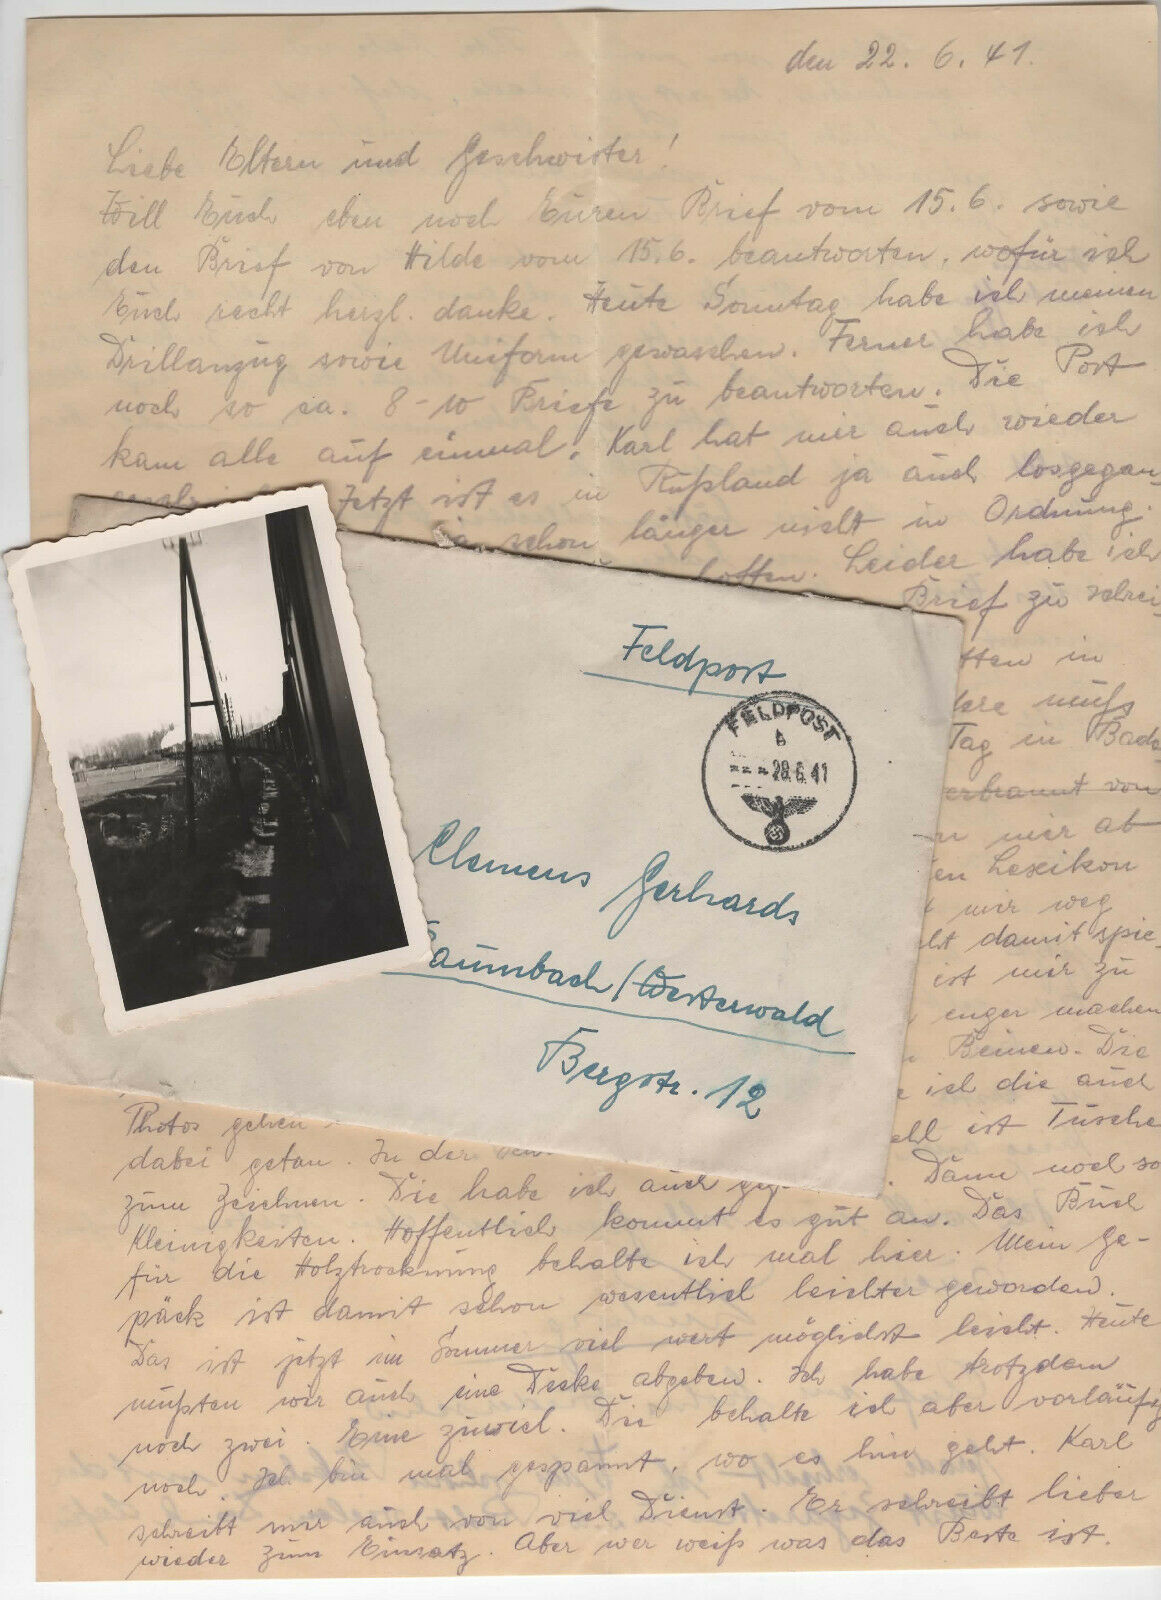 den 22. 6. 41.
Liebe Eltern und Geschwister!
Will Euch eben noch Euren Brief vom 15.6. sowie
den Brief von Hilde vom 15.6. beantworten, wofür ich
Euch recht herzl. danke. Heute Sonntag habe ich meinen
Drillanzug sowie Uniform gewaschen. Ferner habe ich
noch so ca. 8-10 Briefe zu beantworten. Die Post
kam alle auf einmal. Karl hat mir auch wieder
Jetzt ist es in Rußland ja auch losgegan-
ja schon länger nicht in Ordnung.
hoffen. Leider habe ich
Brief zu schrei-
tten in
dere muß
Tag in Bad
erbrannt von
mir ab
en Lexikon
mir weg
ht damit spie-
ist mir zu
enger machen
Beinen. Die
ich die auch
ell ist Tusche
Photos gehen
dabei getan. In der
zum Zeichnen. Die habe ich auch . Dann noch so
Kleinigkeiten. Hoffentlich kommt es gut an. Das Buch
für die Holztrocknung behalte ich mal hier. Mein Ge-
päck ist damit schon wesentlich leichter geworden.
Das ist jetzt im Sommer viel wert möglichst leicht. Heute
mußten wir auch eine Decke abgeben. Ich habe trotzdem
noch zwei. Eine zuviel. Die behalte ich aber vorläufig
noch. Ich bin mal gespannt, wo es hin geht. Karl
schreibt mir auch von viel Dienst. Er schreibt lieber
wieder zum Einsatz. Aber wer weiß was das Beste ist.
Feldpost
FELDPOST
b
28.6.41
Clemens Gerhards
aumbach/Westerwald
Bergstr. 12